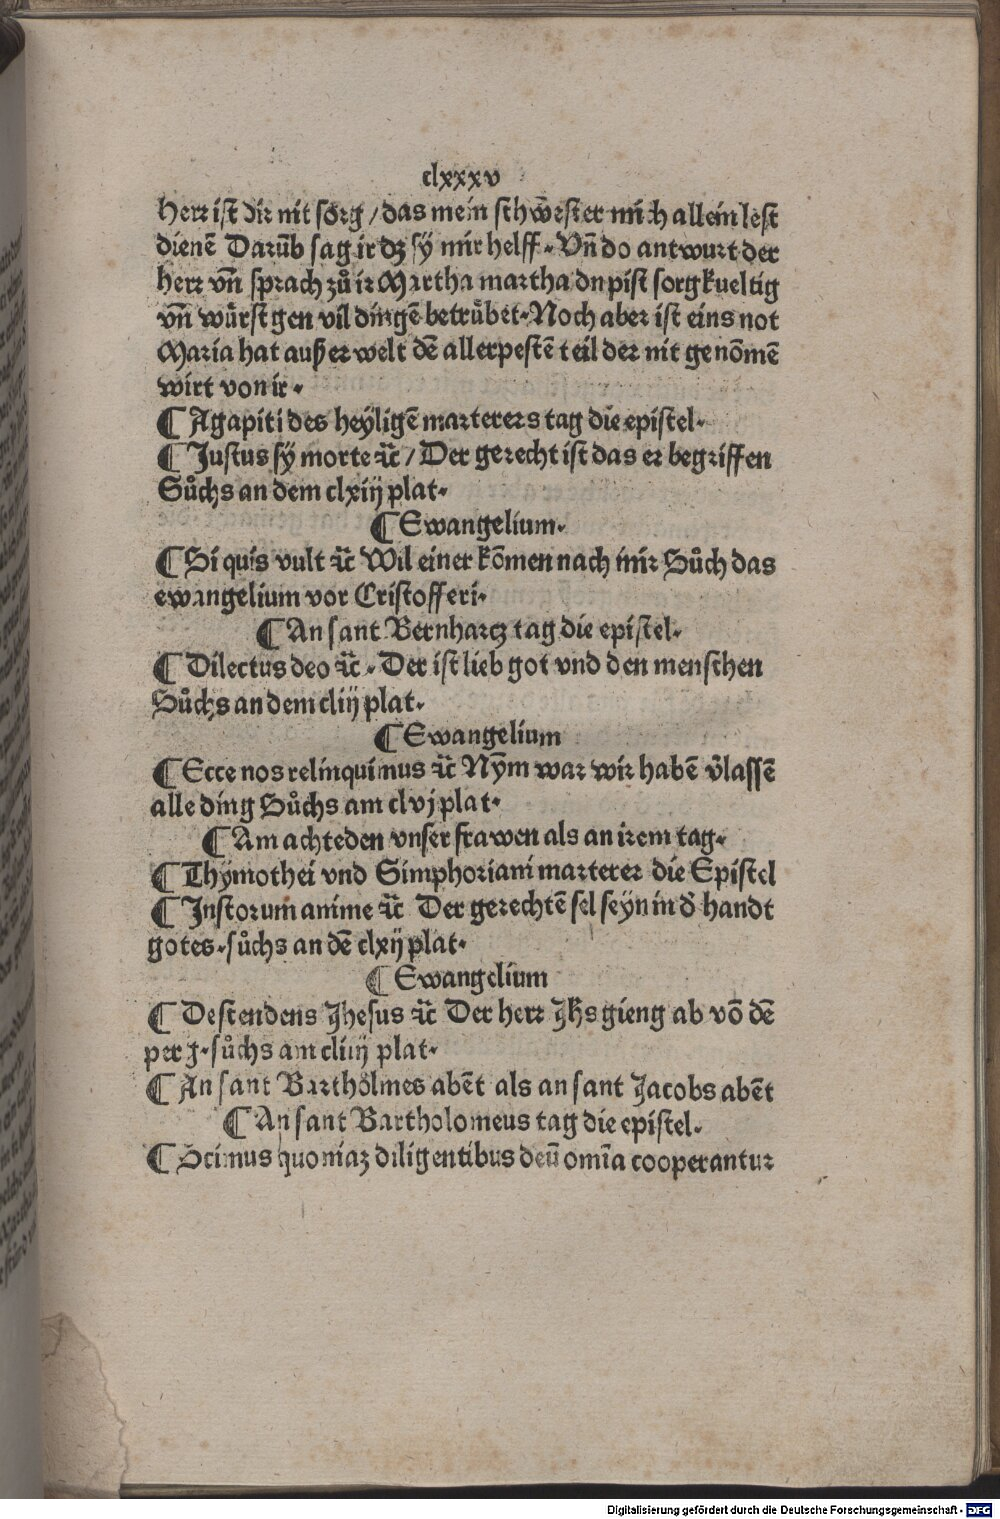 clxxxv
herr ist dir nit sorg / das mein schwester mich allein lest
dienē Darūb sag ir dz sy mir helff. Vñ do antwurt der
herr vñ sprach zů ir Martha martha du pist sorgkueltig
vñ würst gen vil dingē betrübet. Noch aber ist eins not
Maria hat außerwelt dē allerpestē teil der nit genōmē
wirt von ir.
¶ Agapiti des heyligē marterers tag die epistel.
¶ Justus sy morte ⁊c̄ / Der gerecht ist das er begriffen
Sůchs an dem clxiij plat.
¶ Ewangelium.
¶ Si quis vult ⁊c̄ Wil einer kōmen nach mir Sůch das
ewangelium vor Cristofferi.
¶ An sant Bernharcz tag die epistel.
¶ Dilectus deo ⁊c̄. Der ist lieb got vnd den menschen
Sůchs an dem cliij plat.
¶ Ewangelium
¶ Ecce nos relinquimus ⁊c̄ Nym war wir habē v̓lassē
alle ding Sůchs am clvj plat.
¶ Am achteden vnser frawen als an irem tag.
¶ Thymothei vnd Simphoriani marterer die Epistel
¶ Justorum anime ⁊c̄ Der gerechtē sel seyn in d̓ handt
gotes. sůchs an dē clxij plat.
¶ Ewangelium
¶ Descendens Jhesus ⁊c̄ Der herr Jhs gieng ab vō dē
perg. sůchs am cliiij plat.
¶ An sant Bartholmes abēt als an sant Jacobs abēt
¶ An sant Bartholomeus tag die epistel.
¶ Scimus quoniaz diligentibus deū omīa cooperantur
Digitalisierung gefördert durch die Deutsche Forschungsgemeinschaft - DFG